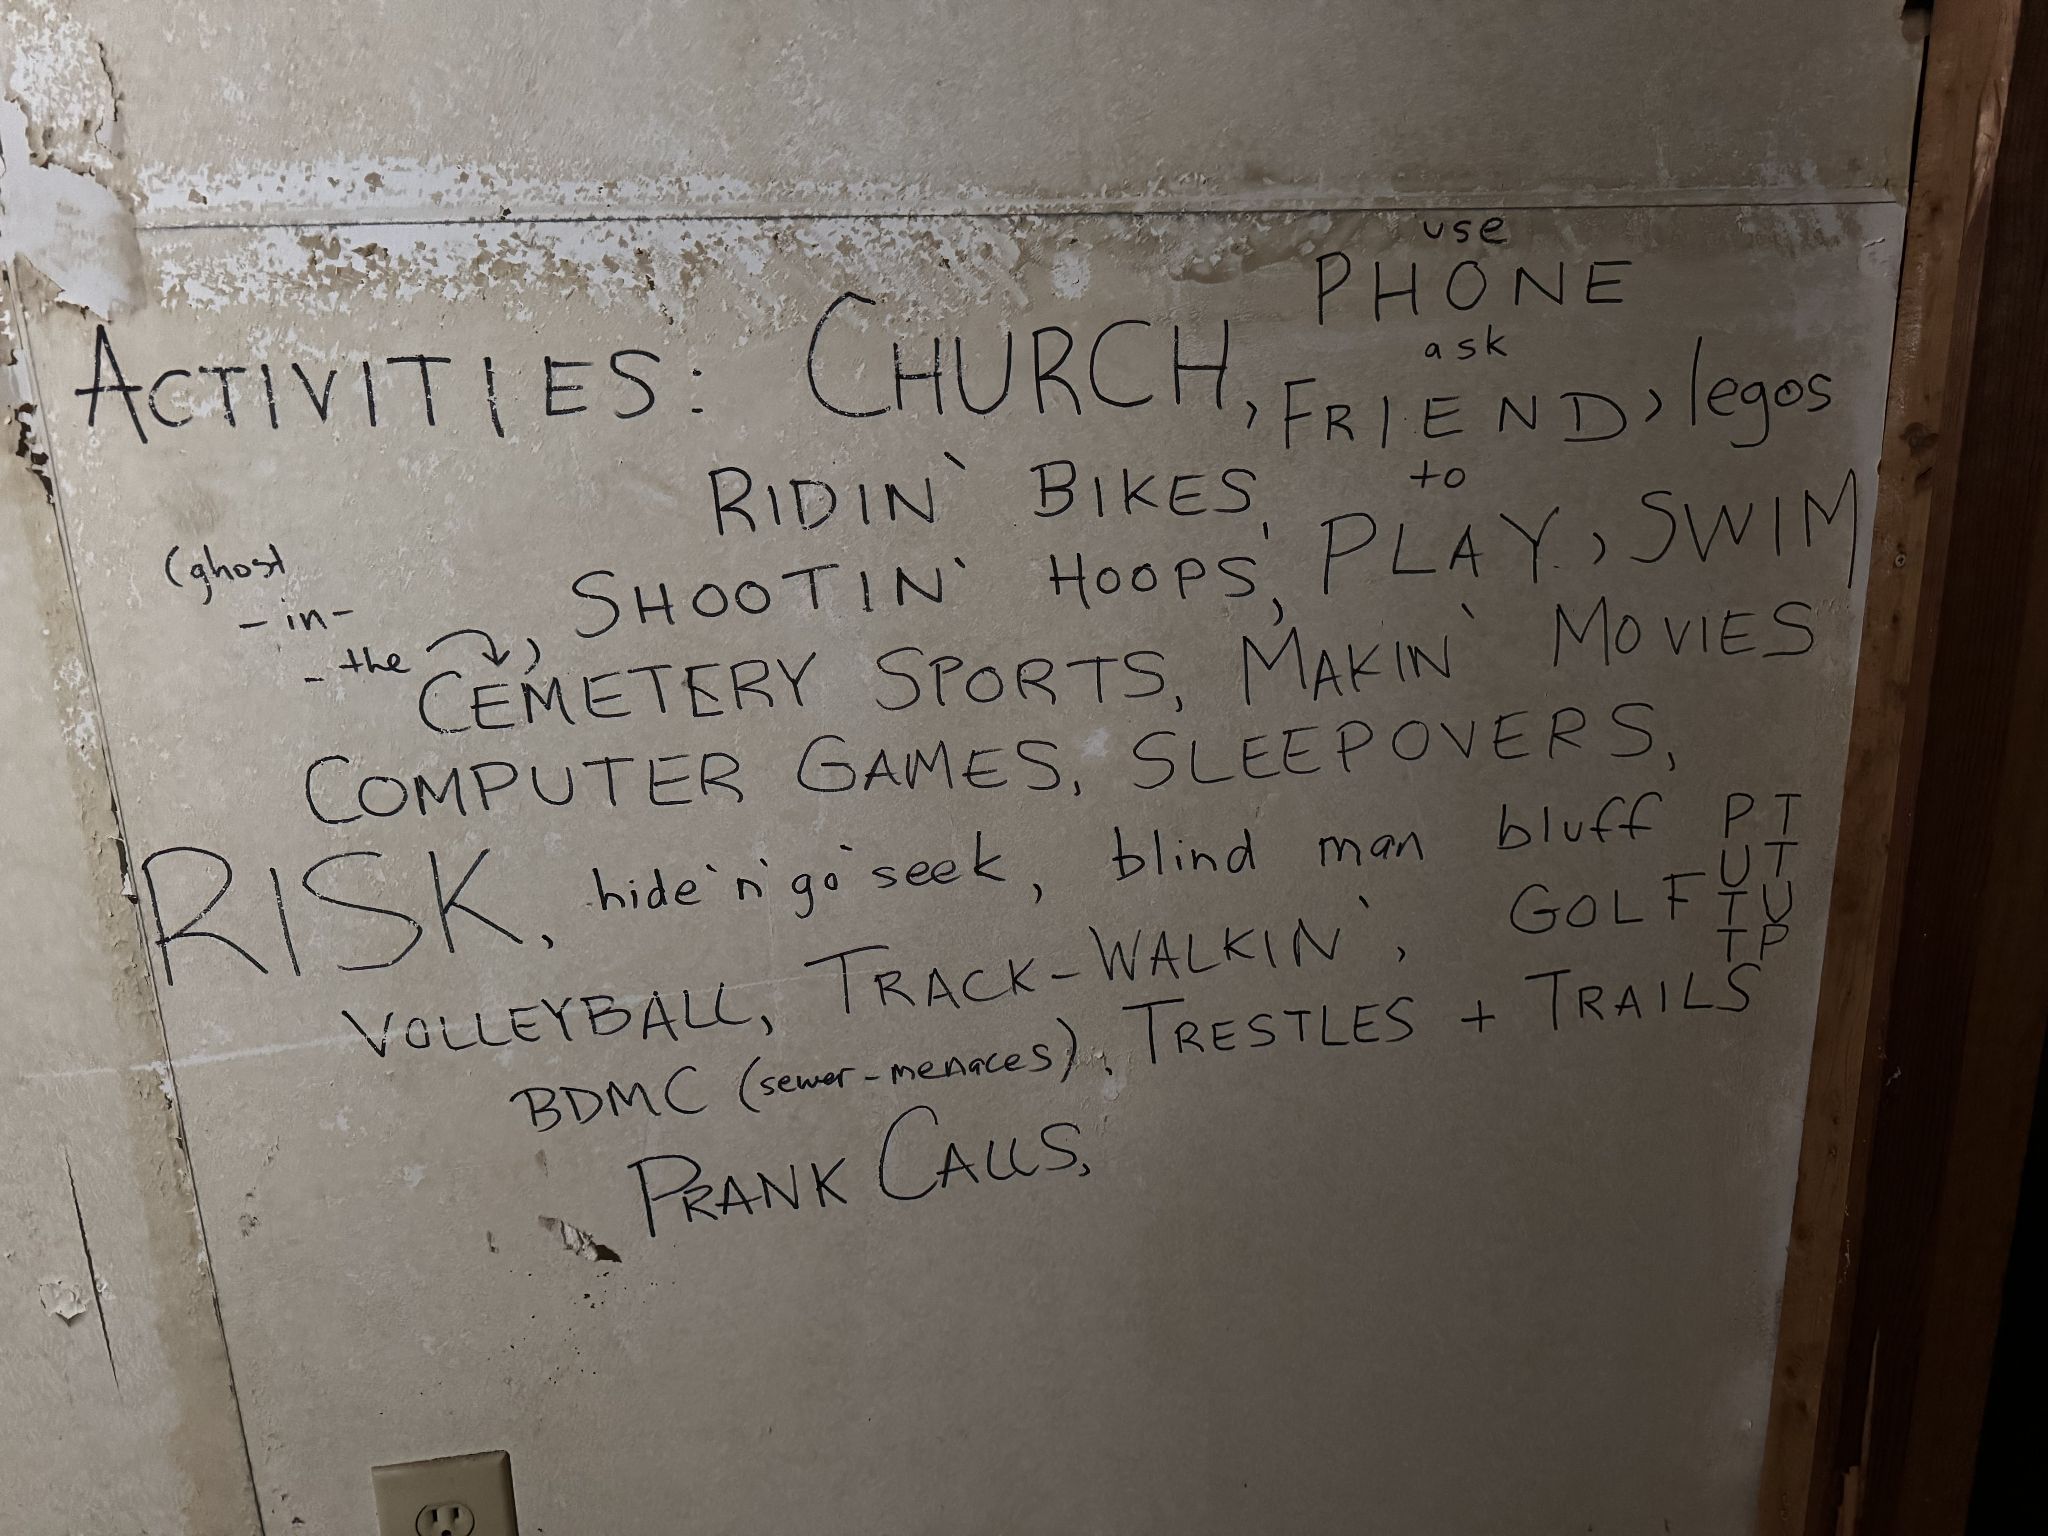 use
PHONE
ask
ACTIVITIES: CHURCH, FRIEND, legos
to
RIDIN' BIKES,
SHOOTIN' HOOPS, PLAY, SWIM
(ghost
-in-
-the , CEMETERY SPORTS, MAKIN' MOVIES
COMPUTER GAMES, SLEEPOVERS,
RISK, hide'n'go'seek, blind man bluff
VOLLEYBALL, TRACK-WALKIN', GOLF
P T
U T
T U
T P
BDMC (sewer-menaces), TRESTLES + TRAILS
PRANK CALLS,